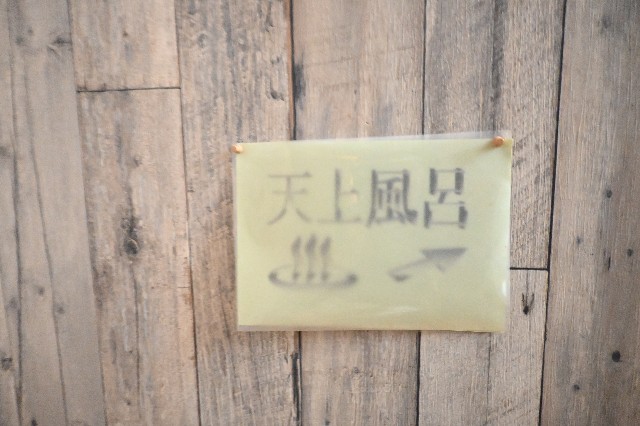 天上風呂